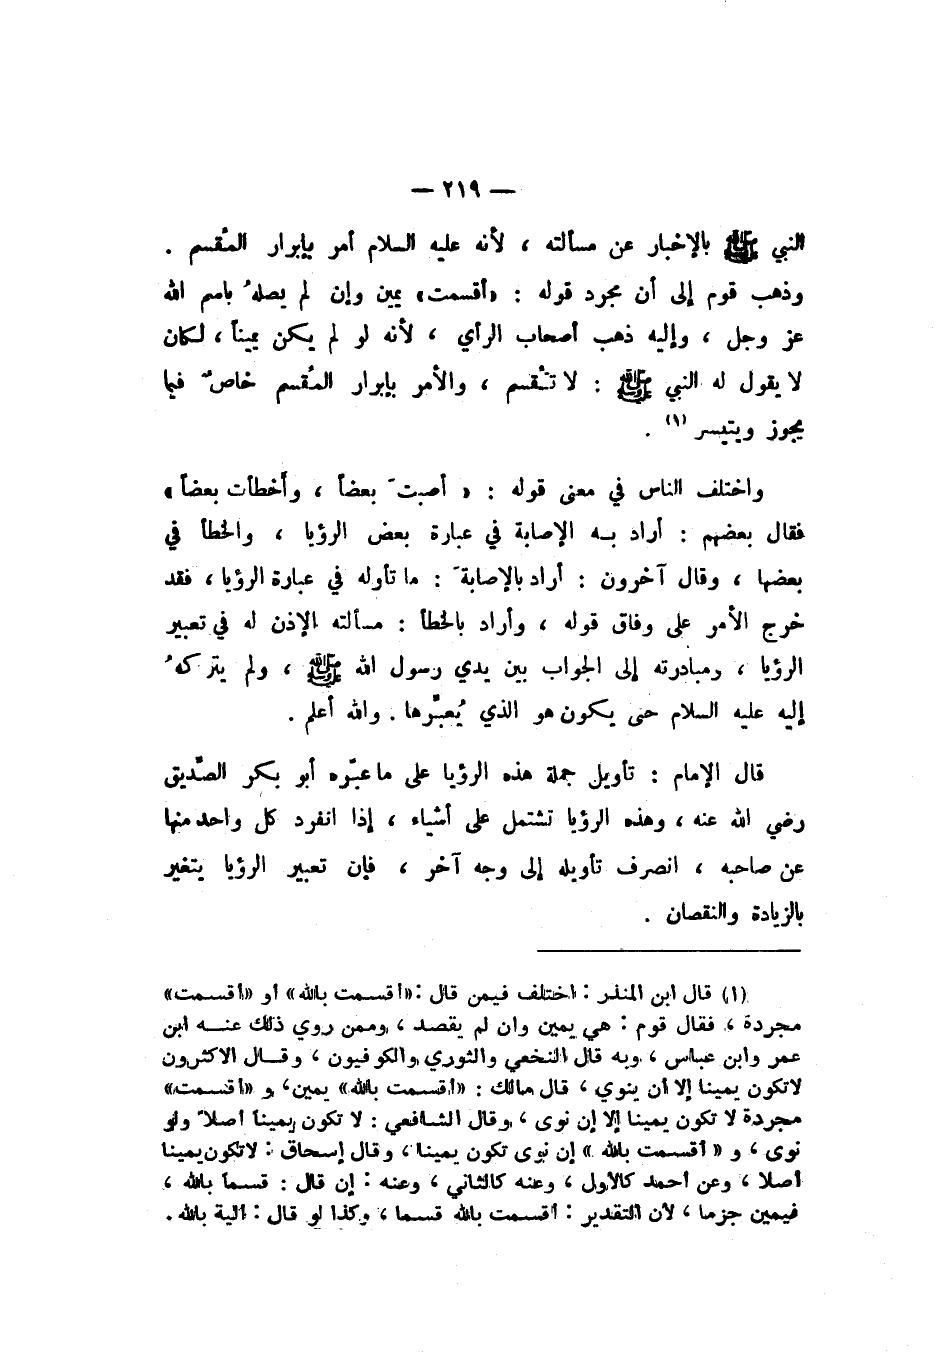 — ٢١٩ —
النبي ﷺ بالإخبار عن مسألته ، لأنه عليه السلام أمر بإبرار المُقسم .
وذهب قوم إلى أن مجرد قوله : «أقسمت» يمين وإن لم يصلهُ باسم الله
عز وجل ، وإليه ذهب أصحاب الرأي ، لأنه لو لم يكن يميناً ، لكان
لا يقول له النبي ﷺ : لا تُقسم ، والأمر بإبرار المُقسم خاصٌ فيما
يجوز ويتيسر (١) .
واختلف الناس في معنى قوله : « أصبتَ بعضاً ، وأخطأت بعضاً »
فقال بعضهم : أراد بـه الإصابة في عبارة بعض الرؤيا ، والخطأ في
بعضها ، وقال آخرون : أراد بالإصابةَ : ما تأوله في عبارة الرؤيا ، فقد
خرج الأمر على وفاق قوله ، وأراد بالخطأ : مسألته الإذن له في تعبير
الرؤيا ، ومبادرته إلى الجواب بين يدي رسول الله ﷺ ، ولم يتركهُ
إليه عليه السلام حتى يكون هو الذي يُعبِّرها . والله أعلم .
قال الإمام : تأويل جملة هذه الرؤيا على ما عبّره أبو بكر الصّديق
رضي الله عنه ، وهذه الرؤيا تشتمل على أشياء ، إذا انفرد كل واحد منها
عن صاحبه ، انصرف تأويله إلى وجه آخر ، فإن تعبير الرؤيا يتغير
بالزيادة والنقصان .
(١) قال ابن المنذر : اختلف فيمن قال : «أقسمت بالله» أو «أقسمت»
مجردة ، فقال قوم : هي يمين وان لم يقصد ، وممن روي ذلك عنـه ابن
عمر وابن عباس ، وبه قال النخعي والثوري والكوفيون ، وقـال الاكثرون
لا تكون يمينا إلا أن ينوي ، قال مالك : «أقسمت بالله» يمين ، و «أقسمت»
مجردة لا تكون يمينا إلا إن نوى ، وقال الشافعي : لا تكون يميناً أصلاً ولو
نوى ، و « أقسمت بالله » إن نوى تكون يمينا ، وقال إسحاق : لا تكون يمينا
أصلا ، وعن أحمد كالأول ، وعنه كالثاني ، وعنه : إن قال : قسماً بالله ،
فيمين جزما ، لأن التقدير : أقسمت بالله قسما ، وكذا لو قال : ألية بالله .